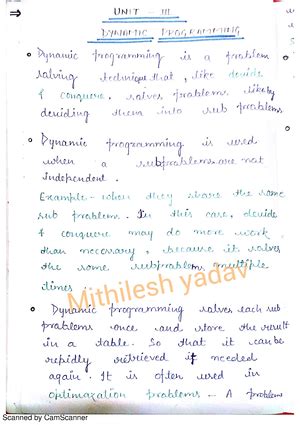 ⇒ UNIT - III
DYNAMIC PROGRAMMING
• Dynamic programming is a problem
solving technique that, like devide
& conquere, solves problems likely
deviding them into sub problems
• Dynamic programming is used
when a subproblems are not
independent.
Example - when they share the same
sub problem. In this case, devide
& conquere may do more work
than necessary, because it solves
the same subproblem multiple
times
Mithilesh yadav
• Dynamic programming solves each sub
problems once and store the result
in a table. So that it can be
repidly retrieved if needed
again. It is often used in
optimazation problems - A problems
Scanned by CamScanner